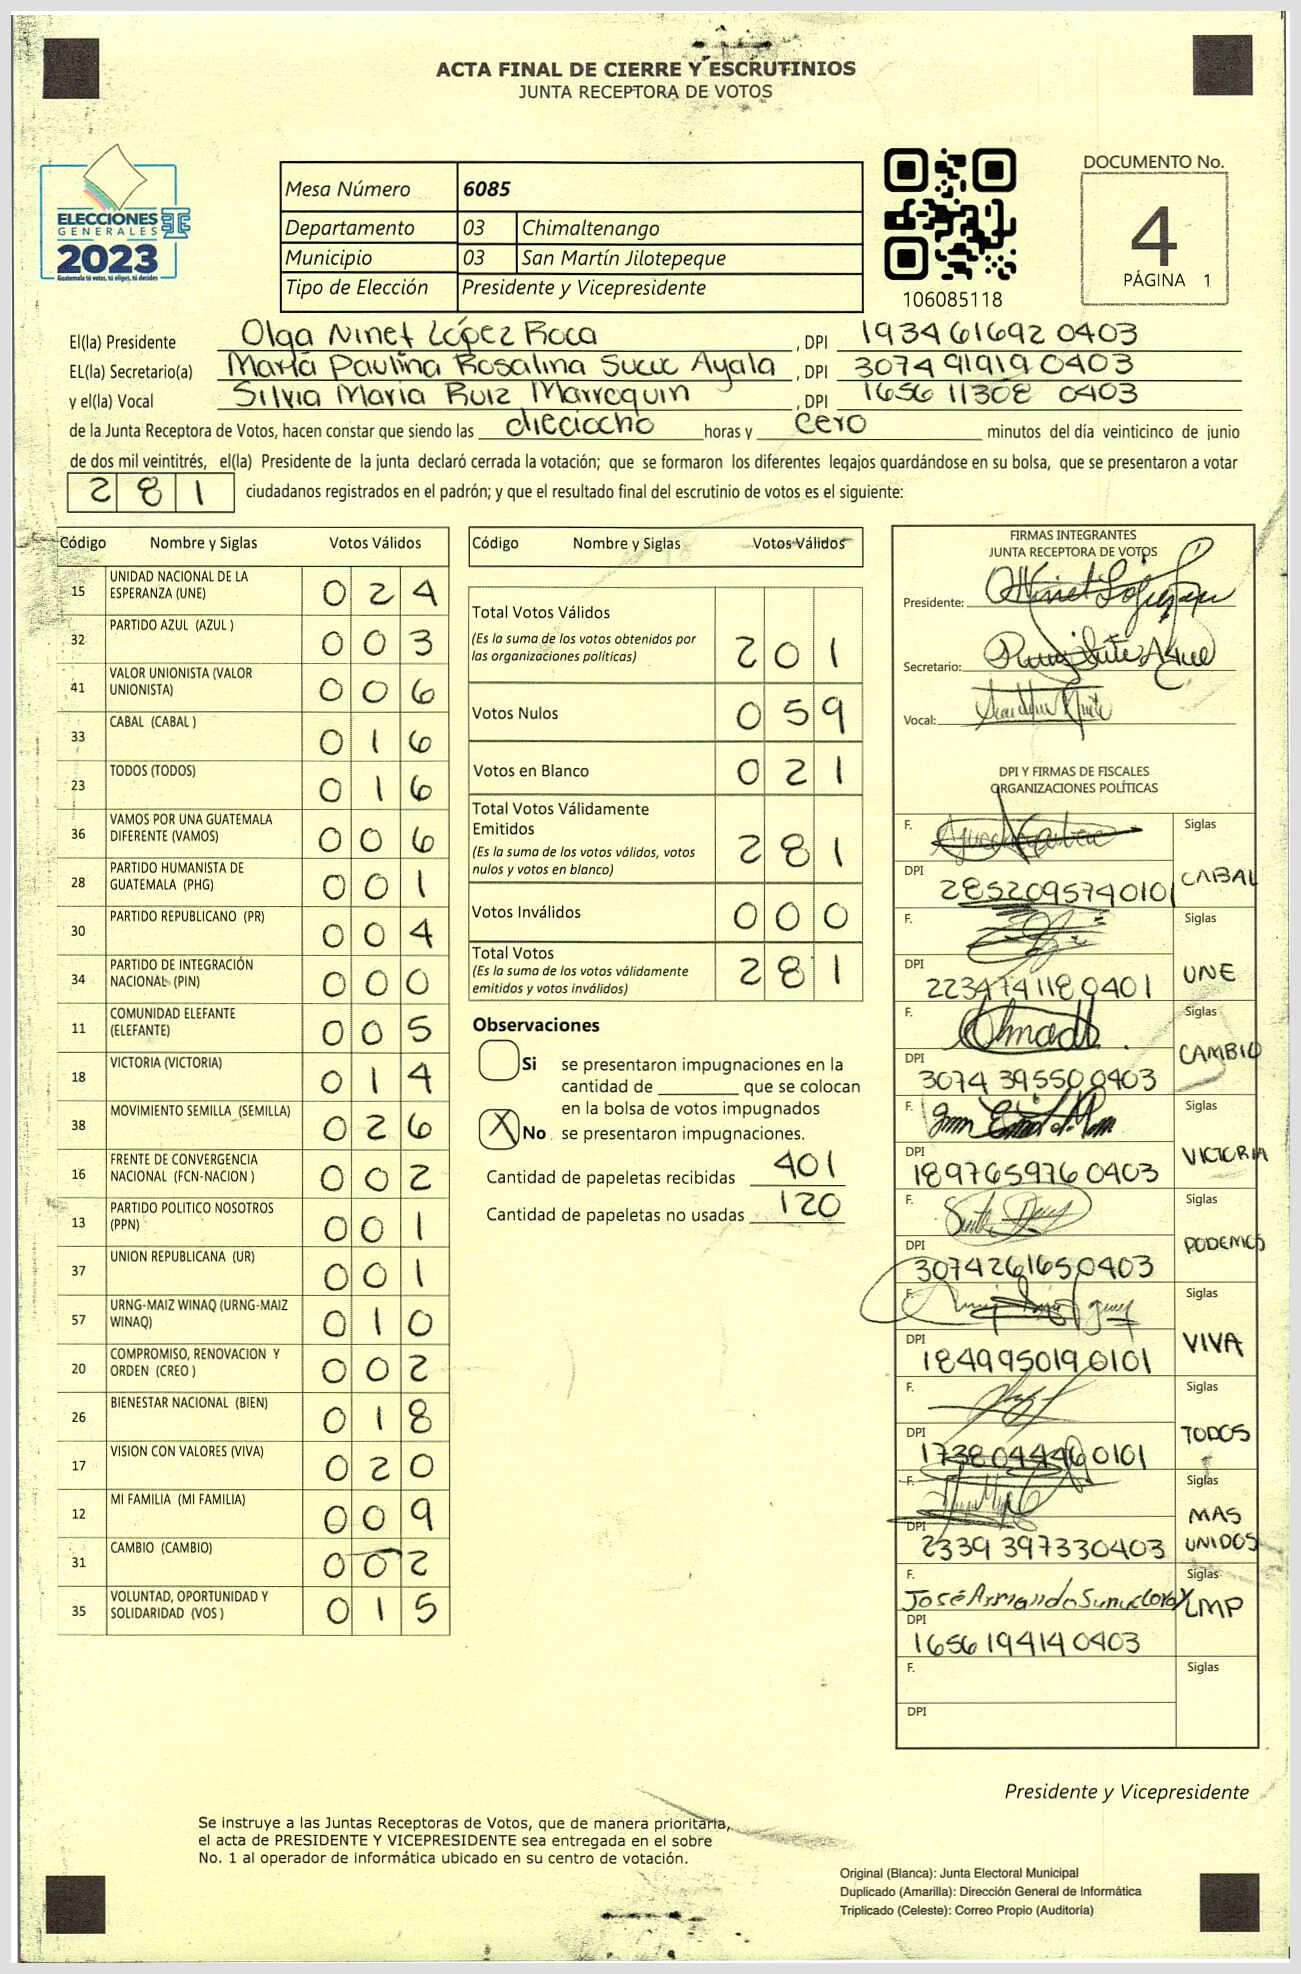 ACTA FINAL DE CIERRE Y ESCRUTINIOS
JUNTA RECEPTORA DE VOTOS
ELECCIONES
GENERALES
2023
Guatemala tú votas, tú eliges, tú decides
Mesa Número 6085
Departamento 03 Chimaltenango
Municipio 03 San Martín Jilotepeque
Tipo de Elección Presidente y Vicepresidente
106085118
DOCUMENTO No.
4
PÁGINA 1
El(la) Presidente Olga Ninet López Roca, DPI 1934 61692 0403
EL(la) Secretario(a) María Paulina Rosalina Sucuc Ayala, DPI 3074 91919 0403
y el(la) Vocal Silvia Maria Ruiz Marroquin, DPI 1656 11308 0403
de la Junta Receptora de Votos, hacen constar que siendo las dieciocho horas y cero minutos del día veinticinco de junio
de dos mil veintitrés, el(la) Presidente de la junta declaró cerrada la votación; que se formaron los diferentes legajos guardándose en su bolsa, que se presentaron a votar
281 ciudadanos registrados en el padrón; y que el resultado final del escrutinio de votos es el siguiente:
Código Nombre y Siglas Votos Válidos
15 UNIDAD NACIONAL DE LA ESPERANZA (UNE) 024
32 PARTIDO AZUL (AZUL ) 003
41 VALOR UNIONISTA (VALOR UNIONISTA) 006
33 CABAL (CABAL ) 016
23 TODOS (TODOS) 016
36 VAMOS POR UNA GUATEMALA DIFERENTE (VAMOS) 006
28 PARTIDO HUMANISTA DE GUATEMALA (PHG) 001
30 PARTIDO REPUBLICANO (PR) 004
34 PARTIDO DE INTEGRACIÓN NACIONAL (PIN) 000
11 COMUNIDAD ELEFANTE (ELEFANTE) 005
18 VICTORIA (VICTORIA) 014
38 MOVIMIENTO SEMILLA (SEMILLA) 026
16 FRENTE DE CONVERGENCIA NACIONAL (FCN-NACION ) 002
13 PARTIDO POLITICO NOSOTROS (PPN) 001
37 UNION REPUBLICANA (UR) 001
57 URNG-MAIZ WINAQ (URNG-MAIZ WINAQ) 010
20 COMPROMISO, RENOVACION Y ORDEN (CREO ) 002
26 BIENESTAR NACIONAL (BIEN) 018
17 VISION CON VALORES (VIVA) 020
12 MI FAMILIA (MI FAMILIA) 009
31 CAMBIO (CAMBIO) 002
35 VOLUNTAD, OPORTUNIDAD Y SOLIDARIDAD (VOS ) 015
Código Nombre y Siglas Votos Válidos
Total Votos Válidos
(Es la suma de los votos obtenidos por
las organizaciones políticas) 201
Votos Nulos 059
Votos en Blanco 021
Total Votos Válidamente
Emitidos
(Es la suma de los votos válidos, votos
nulos y votos en blanco) 281
Votos Inválidos 000
Total Votos
(Es la suma de los votos válidamente
emitidos y votos inválidos) 281
Observaciones
Si se presentaron impugnaciones en la
cantidad de ________ que se colocan
en la bolsa de votos impugnados
X No se presentaron impugnaciones.
Cantidad de papeletas recibidas 401
Cantidad de papeletas no usadas 120
FIRMAS INTEGRANTES
JUNTA RECEPTORA DE VOTOS
Presidente:
Secretario:
Vocal:
DPI Y FIRMAS DE FISCALES
ORGANIZACIONES POLÍTICAS
F. Siglas
DPI 2852095740101 CABAL
F. Siglas
DPI 2234741180401 UNE
F. Siglas
DPI 3074 39550 0403 CAMBIO
F. Siglas
DPI 189765976 0403 VICTORIA
F. Siglas
DPI 3074261650403 PODEMOS
F. Siglas
DPI 1849950190101 VIVA
F. Siglas
DPI 1738044460101 TODOS
F. Siglas
DPI 2339 397330403 MAS UNIDOS
F. José Armando Siglas
DPI 1656194140403 LMP
F. Siglas
DPI
Presidente y Vicepresidente
Se instruye a las Juntas Receptoras de Votos, que de manera prioritaria,
el acta de PRESIDENTE Y VICEPRESIDENTE sea entregada en el sobre
No. 1 al operador de informática ubicado en su centro de votación.
Original (Blanca): Junta Electoral Municipal
Duplicado (Amarilla): Dirección General de Informática
Triplicado (Celeste): Correo Propio (Auditoría)